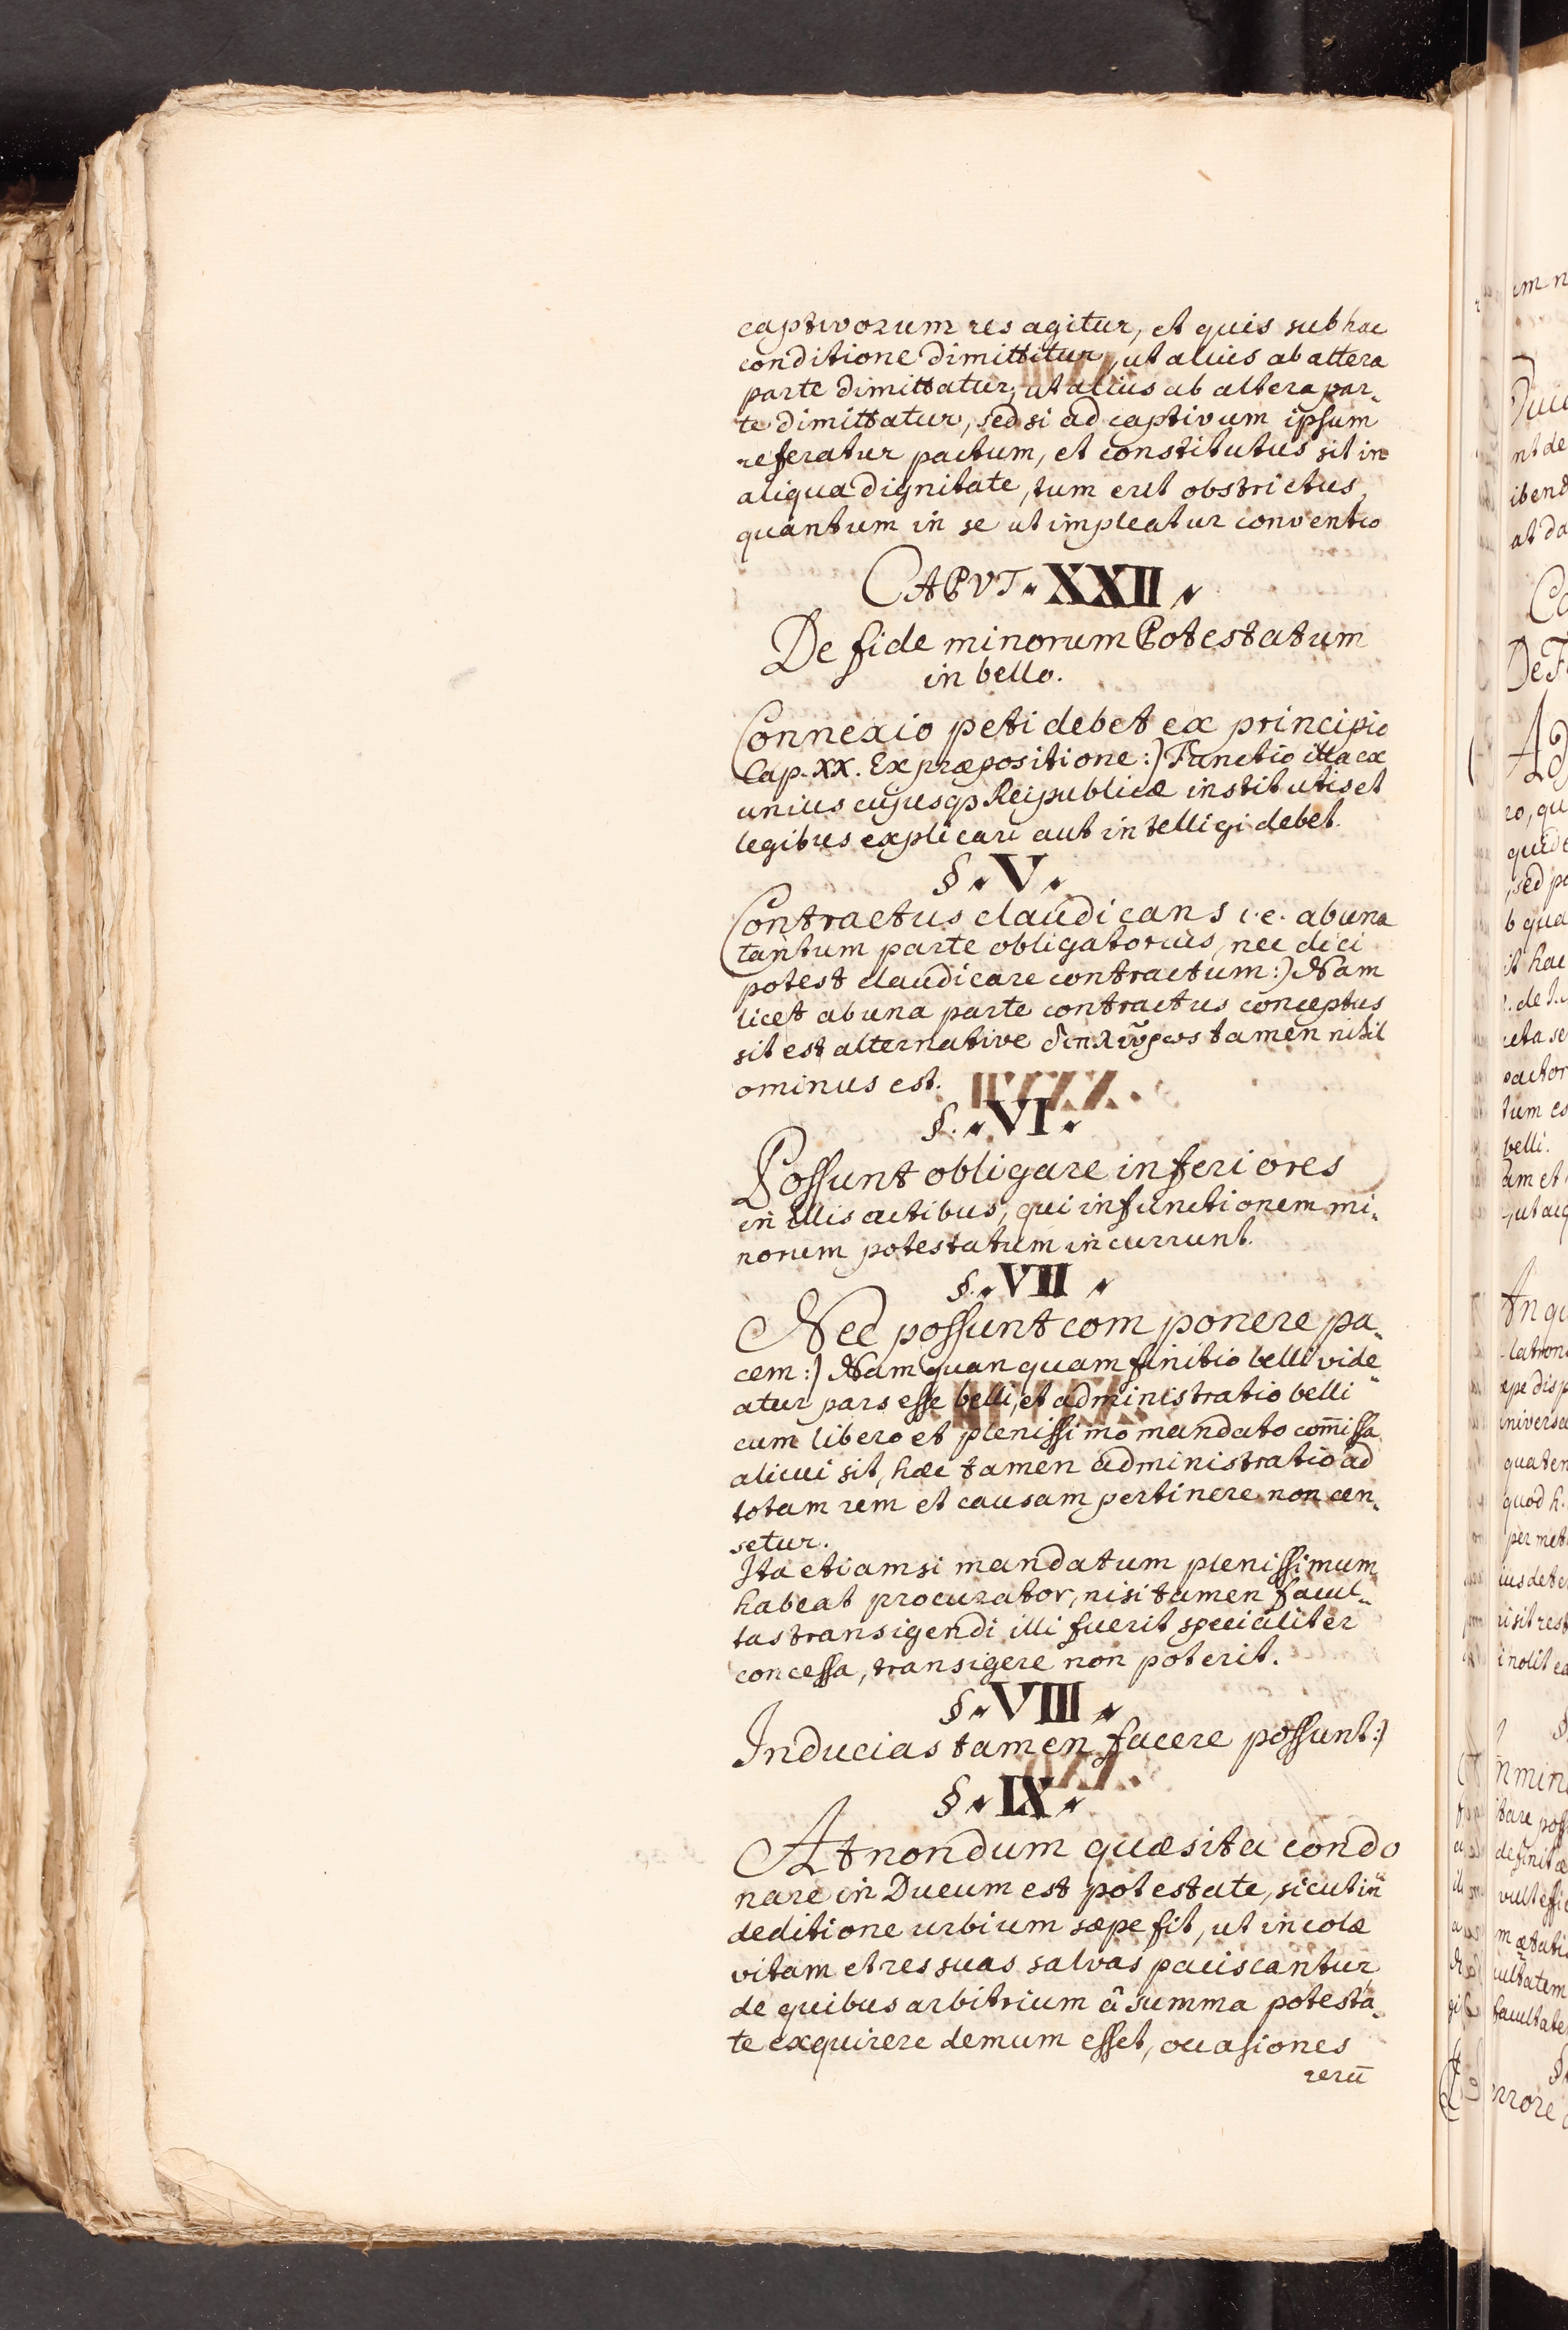 captivorum res agitur, et quis sub hac
conditione dimittitur, ut alius ab altera
parte dimittatur, ut alius ab altera par-
te dimittatur, sed si ad captivum ipsum
referatur pactum, et constitutus sit in
aliqua dignitate, tum erit obstrictus,
quantum in se ut impleatur conventio
CAPVT XXII
De fide minorum Potestatum
in bello.
Connexio peti debet ex principio
Cap. XX. Ex præpositione:) Functio illa ex
unius cujusqꝫ Reipublicæ institutis et
legibus explicari aut intelligi debet.
§ V
Contractus claudicans i.e. ab una
tantum parte obligatorius, nec dici
potest claudicare contractum:) Nam
licet ab una parte contractus conceptus
sit est alternative tamen nihil
ominus est.
§. VI
Possunt obligare inferiores
in illis actibus, qui in functionem mi-
norum potestatum incurrunt.
§. VII
Nec possunt componere pa-
cem:) Nam quanquam finitio belli vide-
atur pars esse belli, et administratio belli
cum libero et plenissimo mandato com̅issa
alicui sit, hæc tamen administratio ad
totam rem et causam pertinere non cen-
setur.
Ita etiamsi mandatum plenissimum
habeat procurator, nisi tamen facul-
tas transigendi illi fuerit specialiter
concessa, transigere non poterit.
§ VIII
Inducias tamen facere possunt:)
§ IX
At nondum quæsita condo
nare in Ducum est potestate, sicut in
deditione urbium sæpe fit, ut incolæ
vitam et res suas salvas paciscantur,
de quibus arbitrium â summa potesta-
te exquirere demum esset, occasiones
rerū